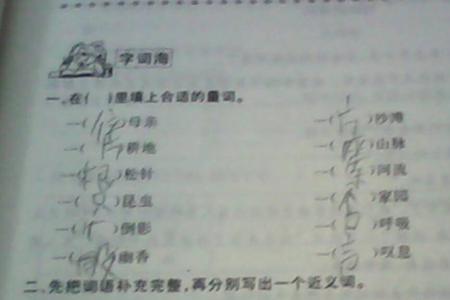 字词海
一、在( )里填上合适的量词。
一(位)母亲 一(片)沙滩
一( )耕地 一(座)山脉
一(根)松针 一(条)河流
一(只)昆虫 一( )家园
一(片)倒影 一( )呼吸
一( )幽香 一(声)叹息
二、先把词语补充完整,再分别写出一个近义词。